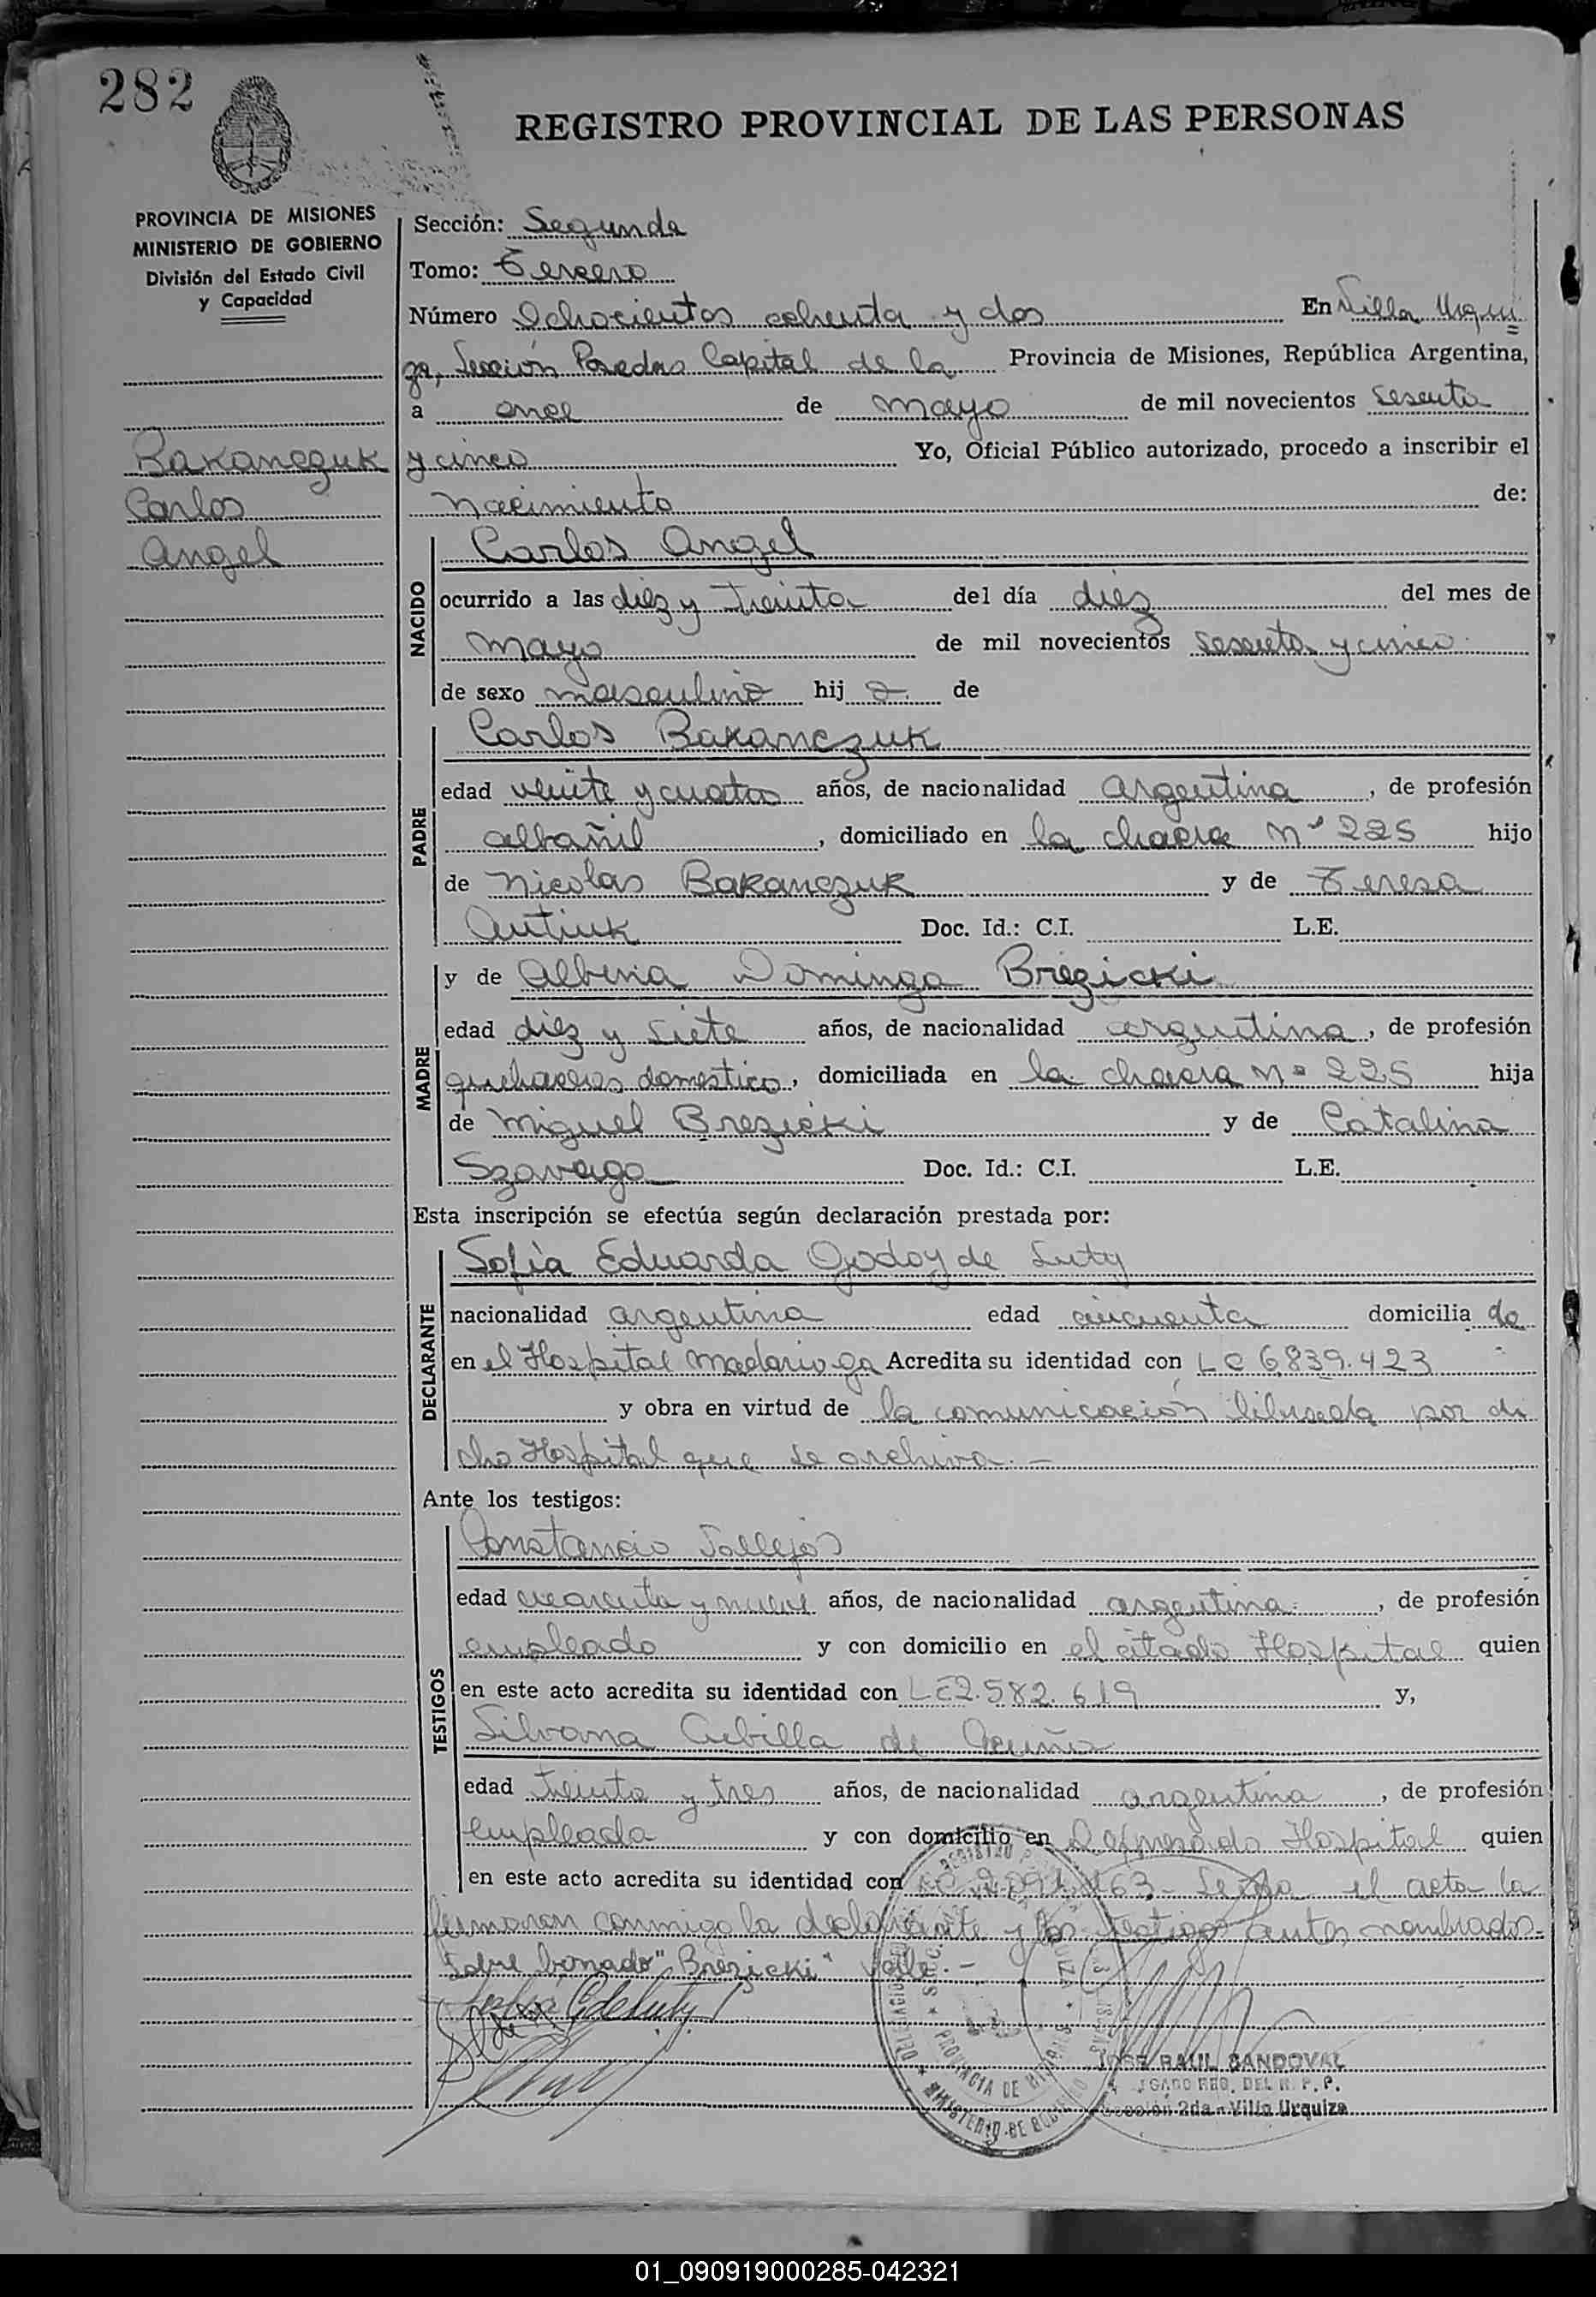 282
REGISTRO PROVINCIAL DE LAS PERSONAS
PROVINCIA DE MISIONES
MINISTERIO DE GOBIERNO
División del Estado Civil
y Capacidad
Bakanczuk
Carlos
Angel
Sección: Segunda
Tomo: Tercero
Número Ochocientos ochenta y dos En Villa Urqui
za, Sección Posadas Capital de la Provincia de Misiones, República Argentina,
a once de mayo de mil novecientos sesenta
y cinco Yo, Oficial Público autorizado, procedo a inscribir el
nacimiento de:
NACIDO
Carlos Angel
ocurrido a las diez y treinta del día diez del mes de
mayo de mil novecientos sesenta y cinco
de sexo masculino hij o de
PADRE
Carlos Bakanczuk
edad veinte y cuatro años, de nacionalidad argentina, de profesión
albañil, domiciliado en la chacra Nº 225 hijo
de Nicolas Bakanczuk y de Teresa
Antiuk Doc. Id.: C.I. L.E.
MADRE
y de Albina Dominga Brezicki
edad diez y siete años, de nacionalidad argentina, de profesión
quehaceres domestico, domiciliada en la chacra Nº 225 hija
de Miguel Brezicki y de Catalina
Szavaga Doc. Id.: C.I. L.E.
Esta inscripción se efectúa según declaración prestada por:
DECLARANTE
Sofia Eduarda Godoy de Luty
nacionalidad argentina edad cincuenta domicilia da
en el Hospital Madariaga Acredita su identidad con LC 6.839.423
y obra en virtud de la comunicación librada por di
cho Hospital que se archiva.-
Ante los testigos:
TESTIGOS
Constancio Vallejos
edad cuarenta y nueve años, de nacionalidad argentina, de profesión
empleado y con domicilio en el citado Hospital quien
en este acto acredita su identidad con LE 2.582.619 y,
Silvana Cubilla de Acuña
edad treinta y tres años, de nacionalidad argentina, de profesión
empleada y con domicilio en Hospital quien
en este acto acredita su identidad con 163- el acta la
firmaron conmigo la declarante y los testigos antes nombrados.-
Sobre borrado "Brezicki" Vale.-
PROVINCIA DE MISIONES
MINISTERIO DE
JOSE RAUL SANDOVAL
Sección 2da - Villa Urquiza
01_090919000285-042321